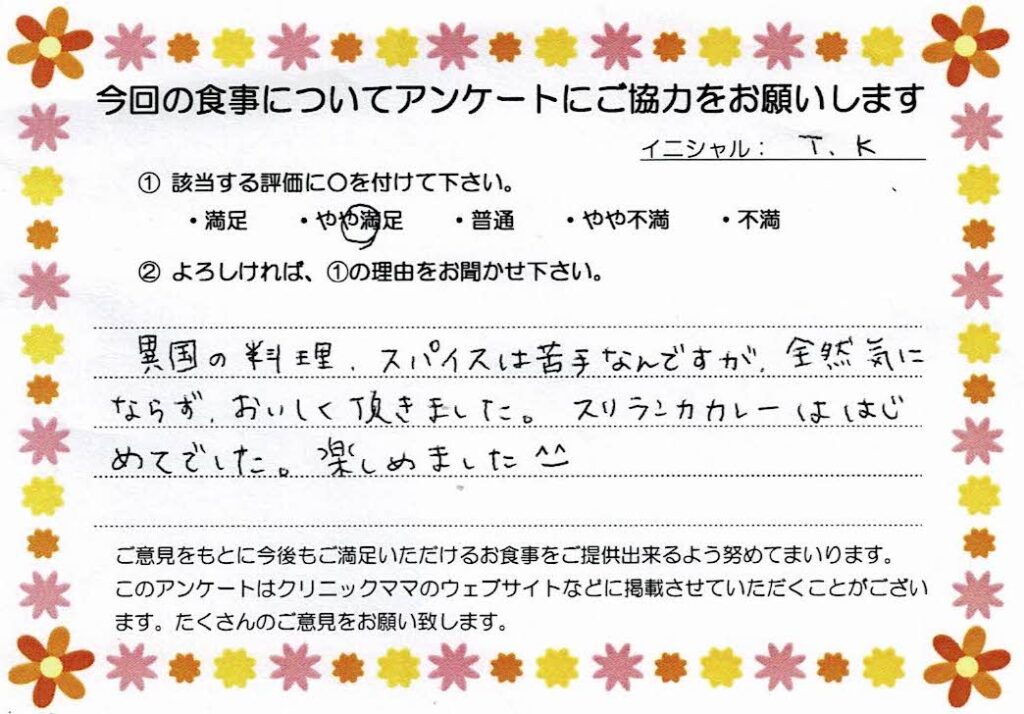 今回の食事についてアンケートにご協力をお願いします
イニシャル： T. K
① 該当する評価に〇を付けて下さい。
・満足 ・やや満足 ・普通 ・やや不満 ・不満
② よろしければ、①の理由をお聞かせ下さい。
異国の料理、スパイスは苦手なんですが、全然気に
ならず、おいしく頂きました。 スリランカカレーははじ
めてでした。楽しめました^^
ご意見をもとに今後もご満足いただけるお食事をご提供出来るよう努めてまいります。
このアンケートはクリニックママのウェブサイトなどに掲載させていただくことがござい
ます。たくさんのご意見をお願い致します。